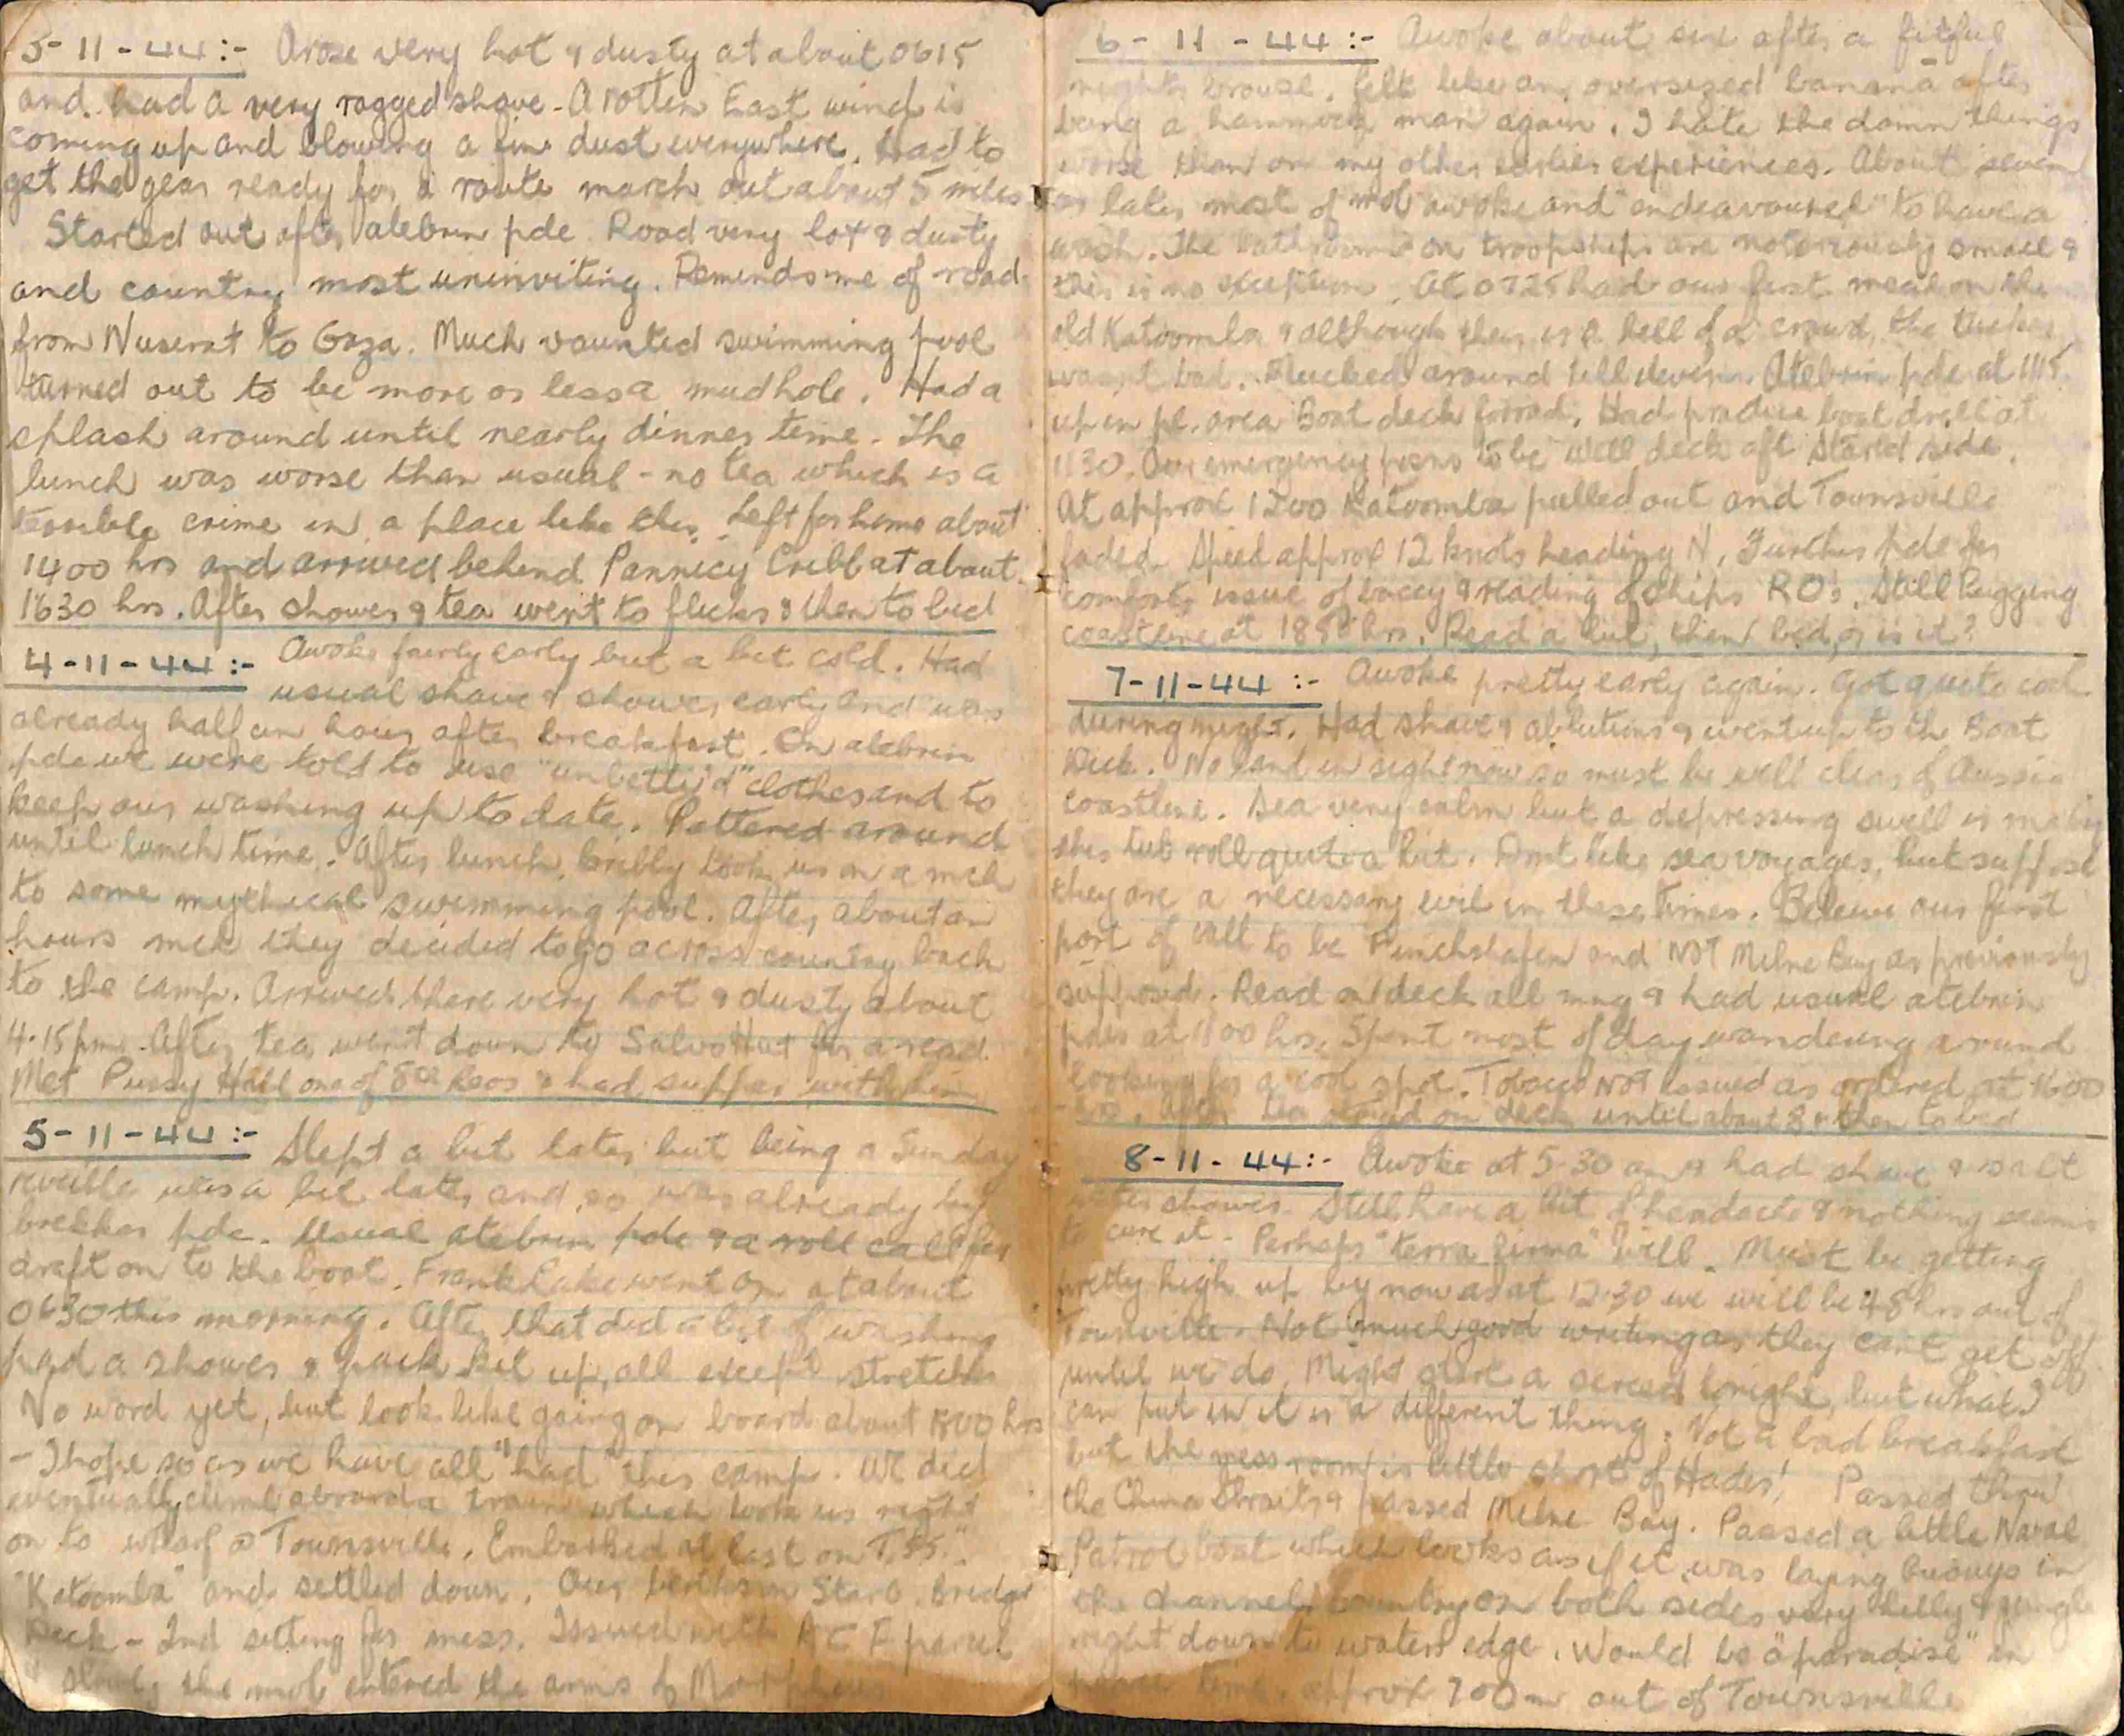 3-11-44:- Arose very hot & dusty at about 0615
and had a very ragged shave - A rotten East wind is
coming up and blowing a fine dust everywhere. Had to
get the gear ready for a route march out about 5 miles
Started out after atebrin pde. Road very hot & dusty
and country most uninviting. Reminds me of road
from Nuserat to Gaza. Much vaunted swimming pool
turned out to be more or less a mudhole. Had a
splash around until nearly dinner time - The
lunch was worse than usual - no tea which is a
terrible crime in a place like this. Left for home about
1400 hrs and arrived behind Cribb at about
1630 hrs. After shower & tea went to flicks & then to bed
4-11-44:- Awoke fairly early but a bit cold. Had
usual shave & shower early and was
already half an hour after breakfast. On atebrin
pde we were told to use "unbetty'd" clothes and to
keep our washing up to date. Pottered around
until lunch time. After lunch, Cribby took us on a mch
to some mythical swimming pool. After about an
hours mch they decided to go across country back
to the camp. Arrived there very hot & dusty about
4.15 pm. After tea went down to Salvo Hut for a read.
Met Pussy Hall one of & had supper with him
5-11-44:- Slept a bit later but being a Sunday
reveille was a bit later and so was already by
brekker pde. Usual atebrin pde & a roll call for
draft on to the boat. Frank Lake went on at about
0630 this morning. After that did a bit of washing
had a shower & pack kit up, all except stretcher
No word yet, but look like going on board about 1800 hrs
- I hope so as we have all "had" this camp. We did
eventually climb aboard a train which took us right
on to wharf @ Townsville. Embarked at last on T.SS.
"Katoomba" and settled down. Our berths in Starb. Bridge
Deck - 2nd sitting for mess. Issued with ACF parcel
& slowly the mob entered the arms of Morpheus
6-11-44:- Awoke about six after a fitful
nights browse. Felt like an oversized banana after
being a hammock man again. I hate the damn things
worse than on my other earlier experiences. About seven
or later most of mob awoke and "endeavoured" to have a
wash. The bathrooms on troopships are notoriously small &
this is no exception. At 0725 had our first meal on the
old Katoomba & although there is a hell of a crowd, the tucker
wasn't bad. around till eleven. Atebrin pde at 1115
up in pl. area Boat deck forrad. Had practice boat drill at
1130. Our emergency posns to be well deck aft starbd side.
At approx 1200 Katoomba pulled out and Townsville
faded. Speed approx 12 knots heading N. Further pde for
comforts issue of baccy & reading of Ships RO's. Still hugging
coastline at 1850 hrs. Read a bit, then bed, or is it?
7-11-44:- Awoke pretty early again. Got quite cool
during night. Had shave & ablutions & went up to th Boat
Deck. No land in sight now so must be well clear of Aussie
coastline. Sea very calm but a depressing swell is making
this tub roll quite a bit. Dont like sea voyages, but suppose
they are a necessary evil in these times. Believe our first
port of call to be Finchshafen and NOT Milne Bay as previously
supposed. Read on deck all mng & had usual atebrin
pde at 1100 hrs. Spent most of day wandering around
looking for a cool spot. Tobacco NOT issued as ordered at 1600
hrs. After tea stayed on deck until about 8 & then to bed
8-11-44:- Awoke at 5.30 am & had shave & salt
water shower. Still have a bit of headache & nothing seems
to cure it - Perhaps "terra firma" will. Must be getting
pretty high up by now as at 12.30 we will be 48 hrs out of
Townsville. Not much good writing as they cant get off
until we do. Might start a screed tonight, but what I
can put in it is a different thing. Not a bad breakfast
but the mess room is little short of Hades! Passed thru
the China Straits & passed Milne Bay. Passed a little Naval
Patrol boat which looks as if it was laying buouys in
the channel. Country on both sides very hilly & jungle
right down to waters edge. Would be a "paradise" in
peace time. approx 700m out of Townsville